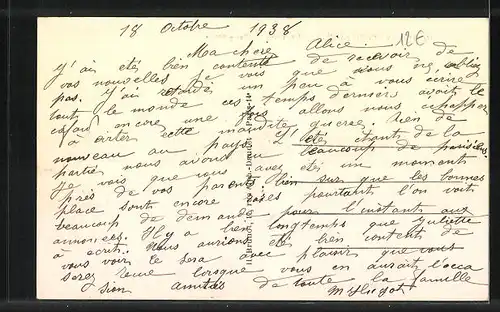 18 Octobre 1938 12€
Ma chère Alice.
J'ai été bien contente de recevoir de
vos nouvelles je vois que vous ne oubliez
pas. J'ai retardée un peu à vous écrire
tout le monde ces temps derniers avait le
encore une fois allons nous échapper
à éviter cette maudite guerre. Rien de
nouveau au pays. L'été étant de la
partie nous avons eu beaucoup de parisiens
Je vois que vous avez été un moment
près de vos parents bien sur que les bonnes
place sont encore rares pourtant l'on voit
beaucoup de demande pour l'instant aux
annonces. Il y a longtemps que Juliette
à écrit. Nous aurions été bien content de
vous voir le sera avec plaisir que vous
serez venue lorsque vous en aurait l'occa
sion amitiés de toute la famille